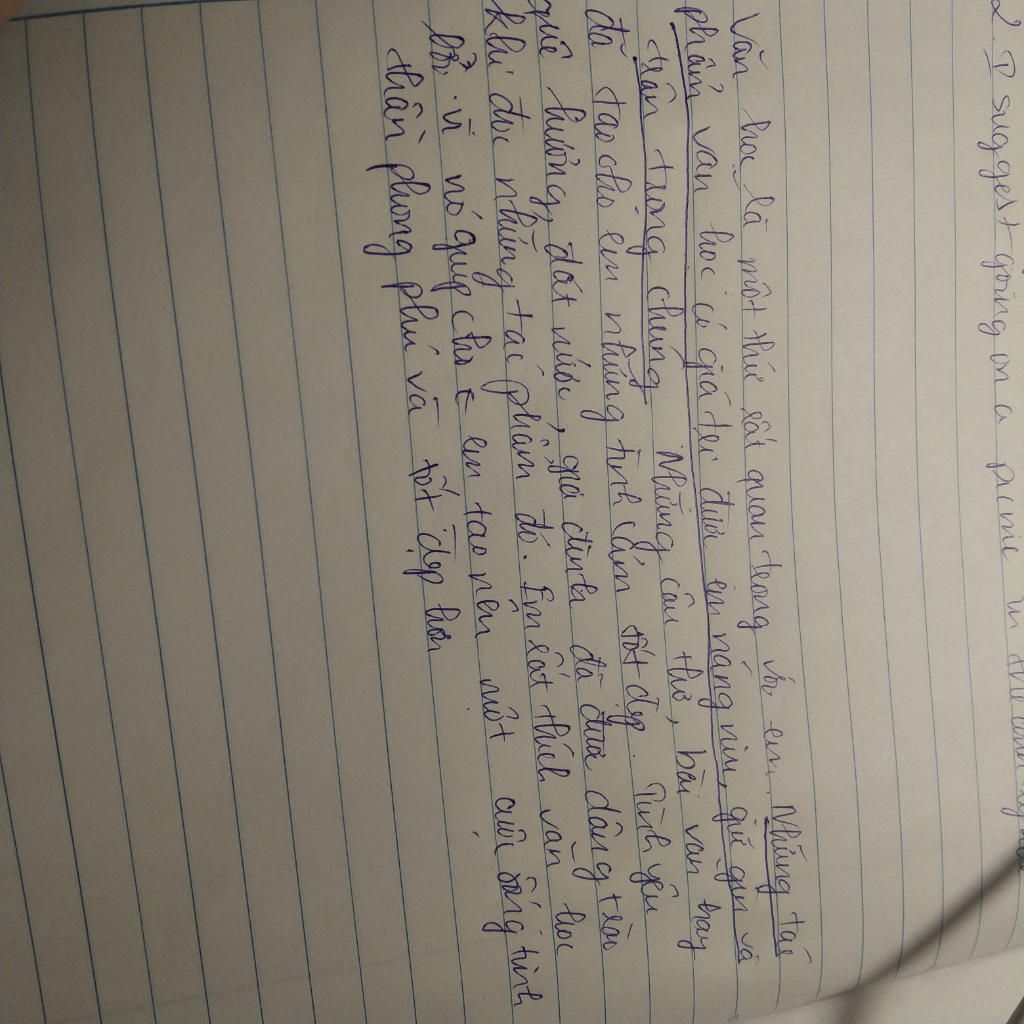 2. I suggest going on a picnic in the
Văn học là một thứ rất quan trọng với em. Những tác
phẩm văn học có giá trị được em nâng niu, giữ gìn và
trân trọng chúng. Những câu thơ, bài văn hay
đã tạo cho em những tình cảm tốt đẹp. Tình yêu
quê hương, đất nước, gia đình đã được dâng trào
khi đọc những tác phẩm đó. Em rất thích văn học
bởi vì nó giúp cho em tạo nên một cuộc sống tinh
thần phong phú và tốt đẹp hơn